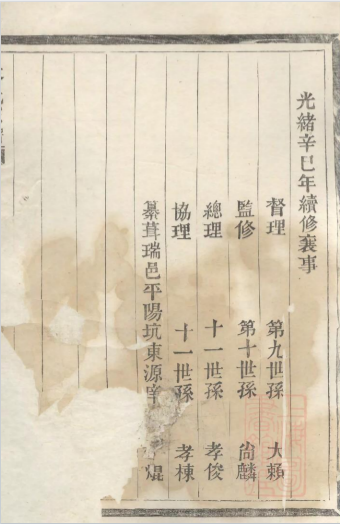 光緒辛巳年續修襄事
督理 第九世孫 大賴
監修 第十世孫 尚麟
總理 十一世孫 孝俊
協理 十一世孫 孝棟
纂葺瑞邑平陽坑東源 焜